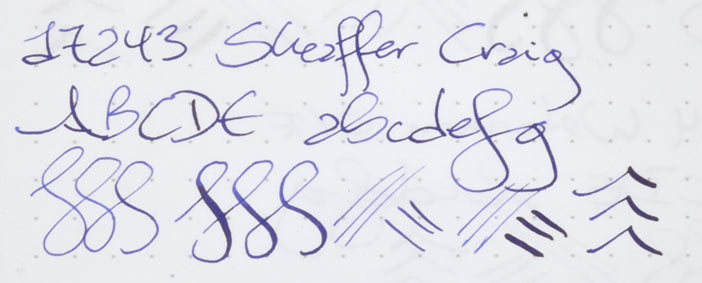 17243 Sheaffer Craig
ABCDE abcdefg